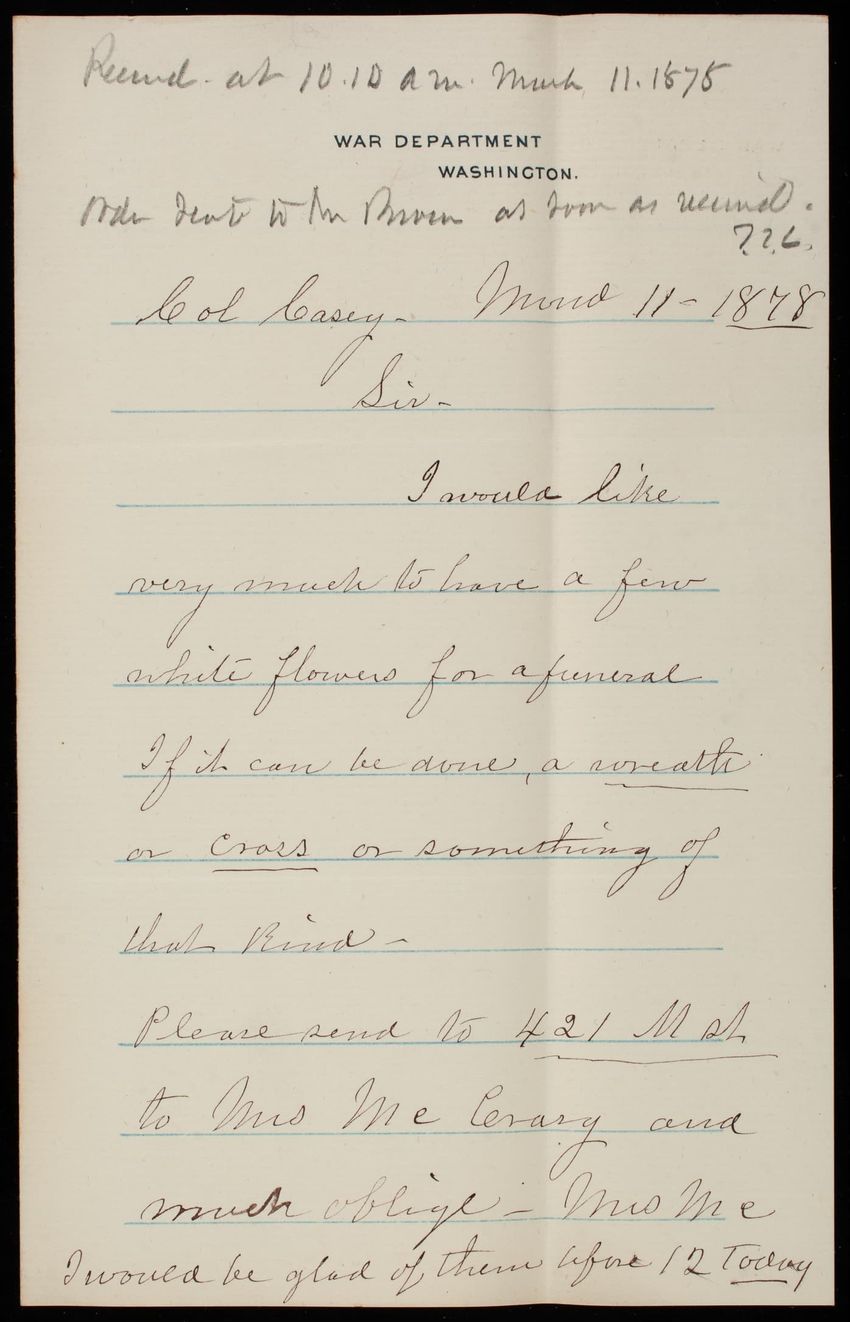 Received. at 10.10 am. March 11. 1878
WAR DEPARTMENT
WASHINGTON.
Order sent to Mr Brown as soon as received.
T.L.C.
Col Casey - March 11 - 1878
Sir -
I would like
very much to have a few
white flowers for a funeral
If it can be done, a wreath
or cross or something of
that kind -
Please send to 421 M st
to Mrs Mc Crary and
much oblige - Mrs Mc
I would be glad of them before 12 Today